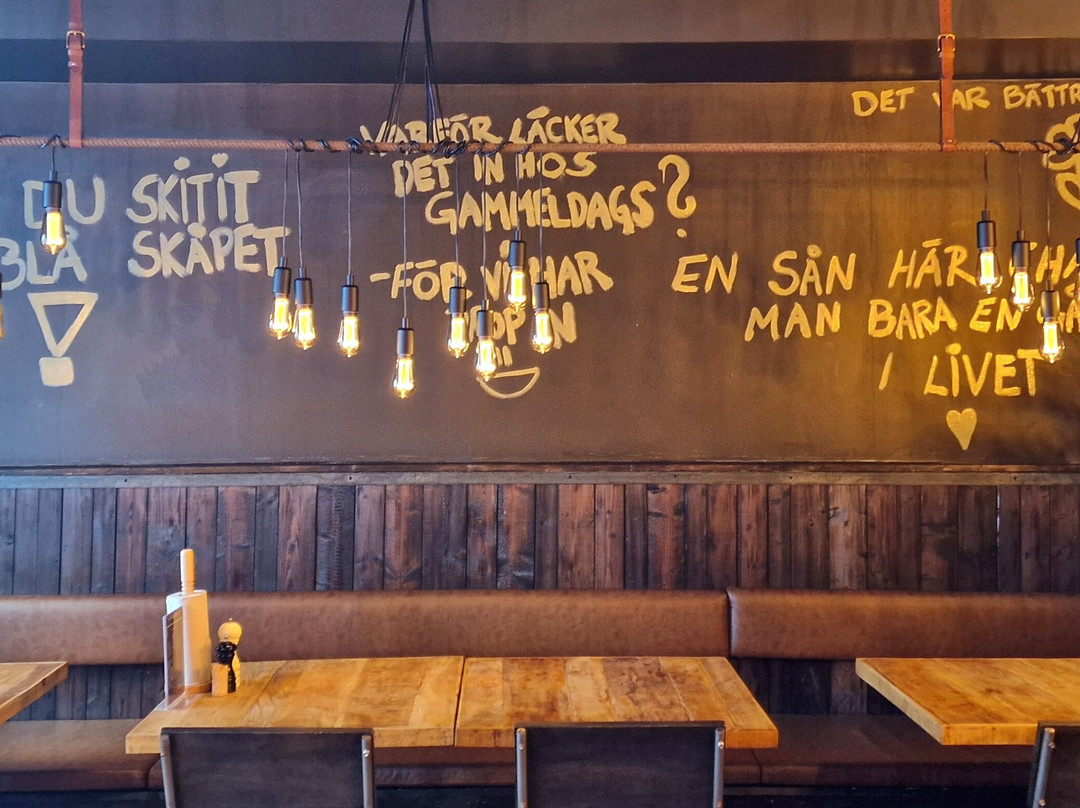 DU SKITIT
BLÅ SKÅPET
!
VARFÖR LÄCKER
DET IN HOS
GAMMELDAGS?
-FÖR VI HAR
DET VAR BÄTTR
EN SÅN HÄR
MAN BARA EN
I LIVET